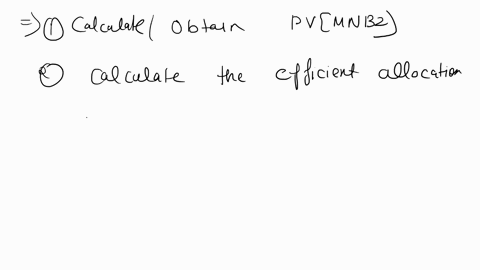 ⇒ ① Calculate/ Obtain PV[MNB2)
② Calculate the efficient allocation